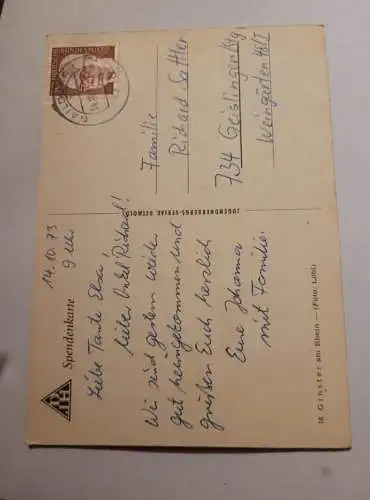 DJH
Spendenkarte
14.10.73
9 Uhr
Liebe Tante Elsa!
Lieber Onkel Richard!
Wir sind gestern wieder
gut heimgekommen und
grüßen Euch herzlich
Eure Johanna
mit Familie.
JUGENDHERBERGS-VERLAG DETMOLD
Familie
Richard Sattler
734 Geislingen/Stg
Weingärten 48/1
38 Ginster am Rhein — (Foto: Löhl)